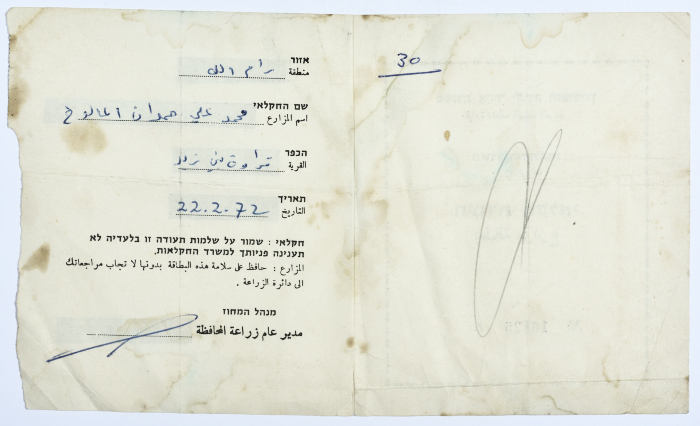 30
אזור
منطقة رام الله
שם החקלאי
اسم المزارع محمد علي حمدان المالوح
הכפר
القرية قراوة بني زيد
תאריך
التاريخ 22.2.72
חקלאי : שמור על שלמות תעודה זו בלעדיה לא
תענינה פניותך למשרד החקלאות.
المزارع : حافظ على سلامة هذه البطاقة بدونها لا تجاب مراجعاتك
الى دائرة الزراعة .
מנהל המחוז
مدير عام زراعة المحافظة